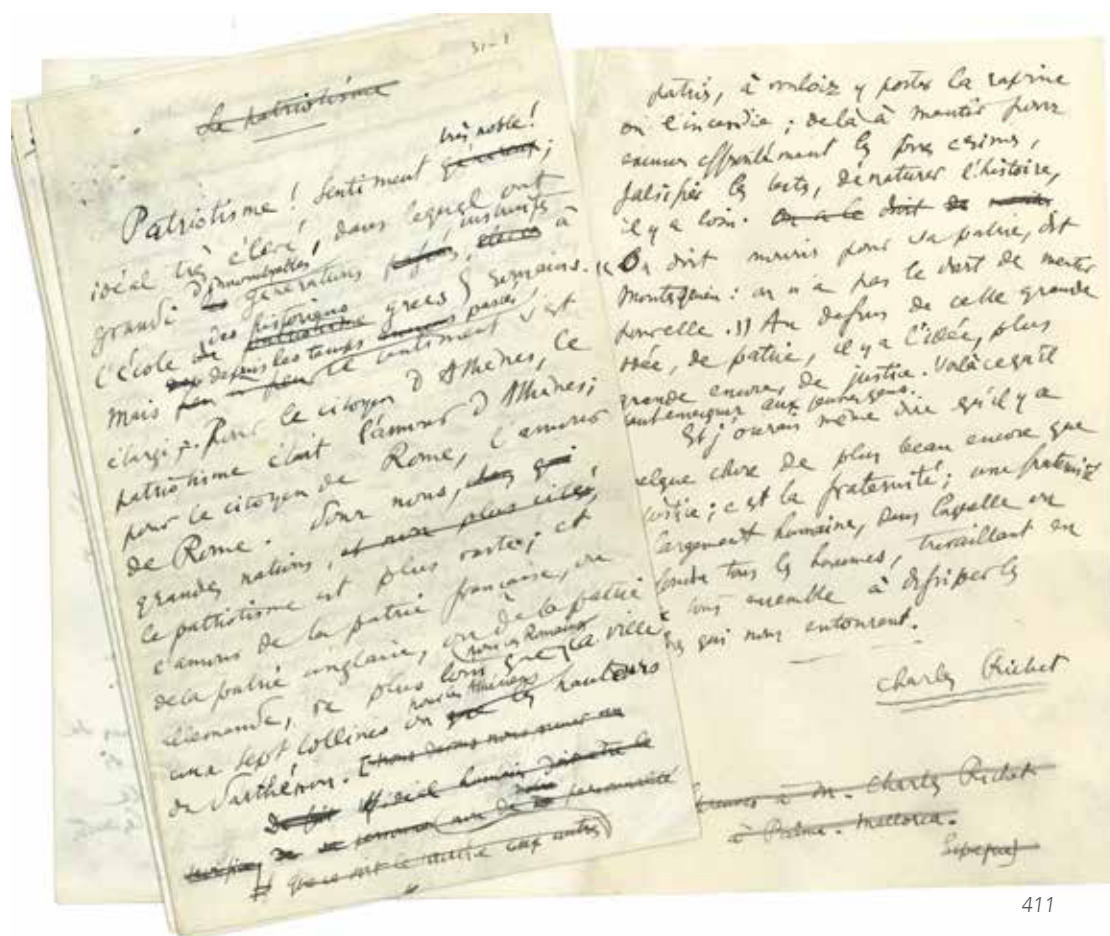 Le patriotisme
très noble!
Patriotisme! Sentiment généreux;
idéal très élevé, dans lequel ont
grandi d'innombrables générations instruits à
l'école des historiques grecs & romains.
Mais depuis les temps passés, le sentiment s'est
élargi. Pour le citoyen d'Athènes, le
patriotisme était l'amour d'Athènes;
pour le citoyen de Rome, l'amour
de Rome. Pour nous,
grandes nations, et non plus cités,
le patriotisme est plus vaste; et
l'amour de la patrie française, ou
de la patrie anglaise, ou de la patrie
allemande, va plus loin que la ville
pour les Romains
aux sept collines ou les hauteurs
pour les Athéniens
du Parthénon.
patrie, à vouloir y porter la rapine
ou l'incendie; de là à mentir pour
excuser effrontément les pires crimes,
falsifier les textes, dénaturer l'histoire,
il y a loin. On a le droit de
« On doit mourir pour sa patrie, dit
Montesquieu: on n'a pas le droit de mentir
pour elle. » Au dessus de cette grande
idée, de patrie, il y a l'idée, plus
grande encore, de justice. Voilà ce qu'il
faut enseigner aux jeunes gens.
Et j'oserais même dire qu'il y a
quelque chose de plus beau encore que
justice; c'est la fraternité; une fraternité
largement humaine, dans laquelle on
tous les hommes, travaillant en
tous ensemble à
qui nous entourent.
Charles Richet
à M. Charles Richet
à Palma. Mallorca.
411